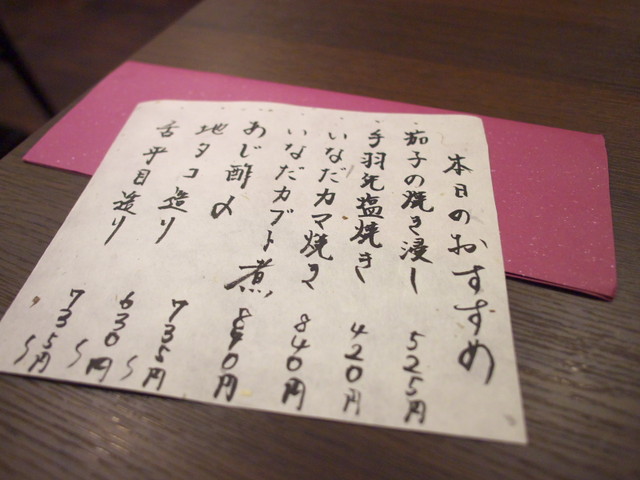 本日のおすすめ
茄子の焼き浸し 525円
手羽先塩焼き 420円
いなだカマ焼き 840円
いなだカブト煮 840円
あじ酢〆 735円〜
地タコ造り 630円〜
舌平目造り 735円〜